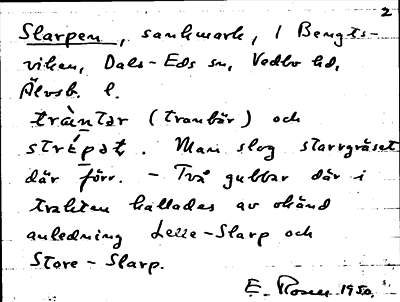 2
Slarpen, sankmark, i Bengts-
viken, Dals-Eds sn, Vedbo hd,
Älvsb. l.
tràntər (tranbär) och
strépət. Man slog starrgräset
där förr. – Två gubbar där i
trakten kallades av okänd
anledning Lelle-Slarp och
Store-Slarp.
E. Rosen 1950